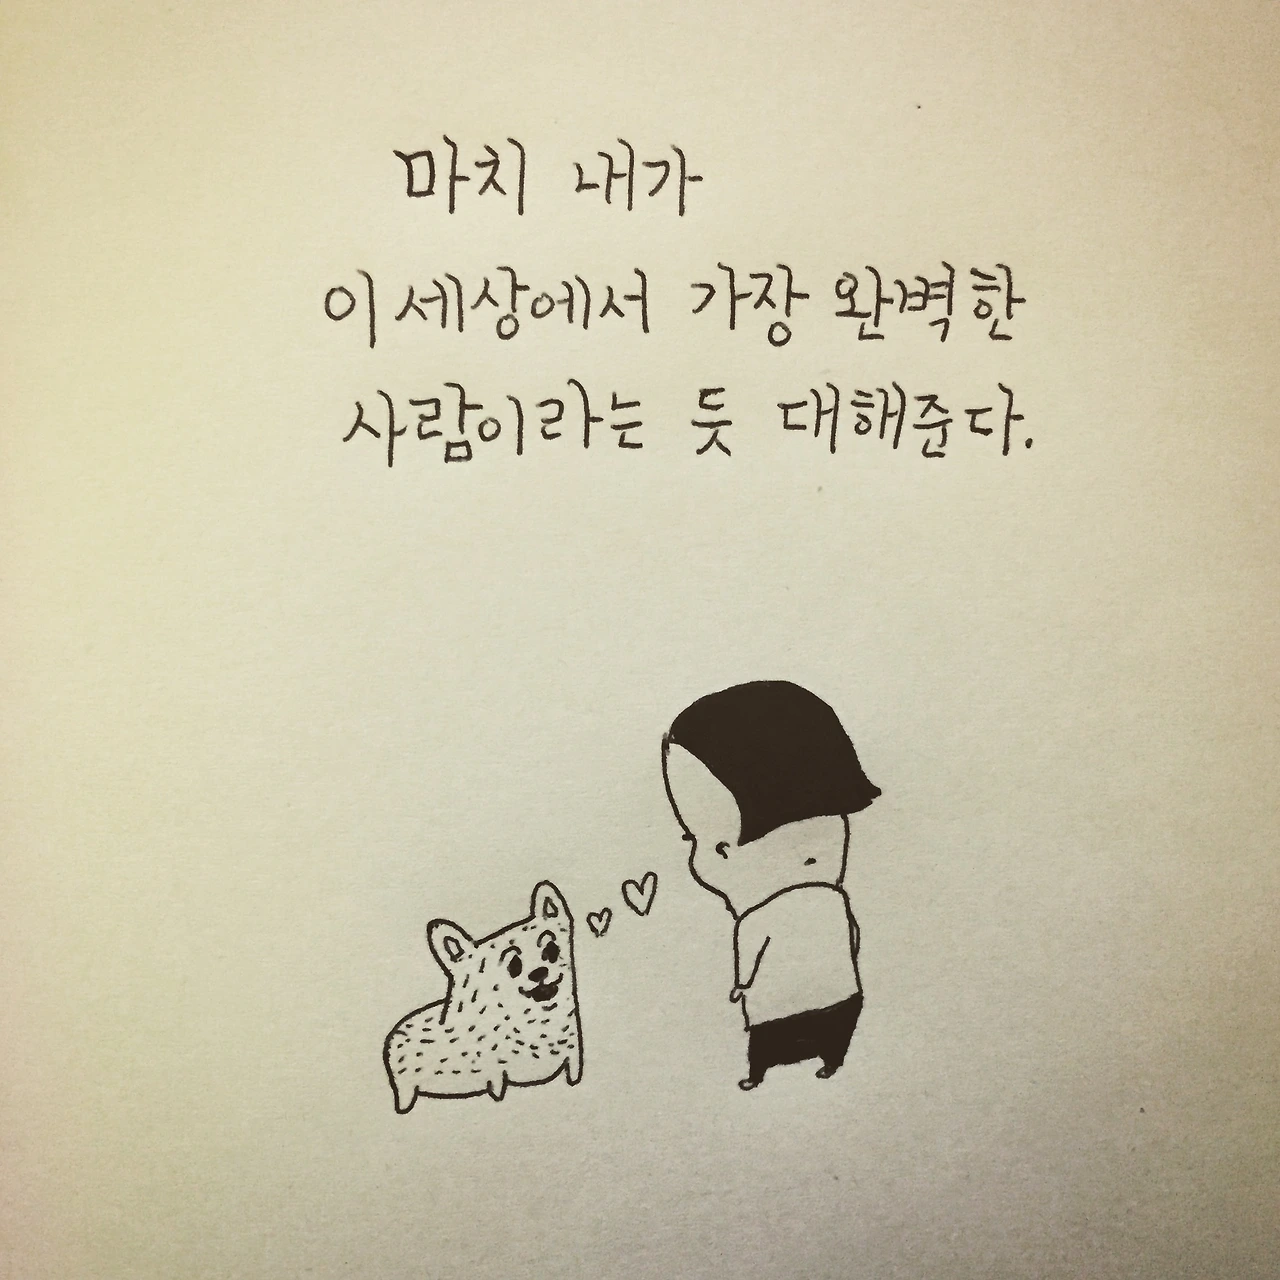 마치 내가
이 세상에서 가장 완벽한
사람이라는 듯 대해준다.